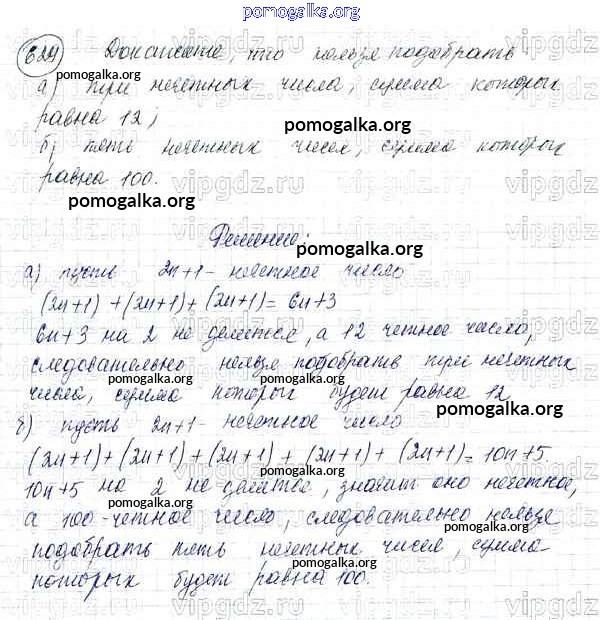 pomogalka.org
629 Докажите, что нельзя подобрать
pomogalka.org
а) три нечетных числа, сумма которых
равна 12;
pomogalka.org
б) пять нечетных чисел, сумма которых
равна 100.
vipgdz.ru
pomogalka.org
Решение:
pomogalka.org
а) пусть 2n+1 - нечетное число
(2n+1) + (2n+1) + (2n+1) = 6n+3
6n+3 на 2 не делится, а 12 четное число,
следовательно нельзя подобрать три нечетных
pomogalka.org
числа, сумма которых будет равна 12
pomogalka.org
б) пусть 2n+1 - нечетное число
pomogalka.org
(2n+1) + (2n+1) + (2n+1) + (2n+1) + (2n+1) = 10n+5.
pomogalka.org
10n+5 на 2 не делится, значит оно нечетное,
а 100 - четное число, следовательно нельзя
pomogalka.org
подобрать пять нечетных чисел, сумма
pomogalka.org
которых будет равна 100.
vipgdz.ru